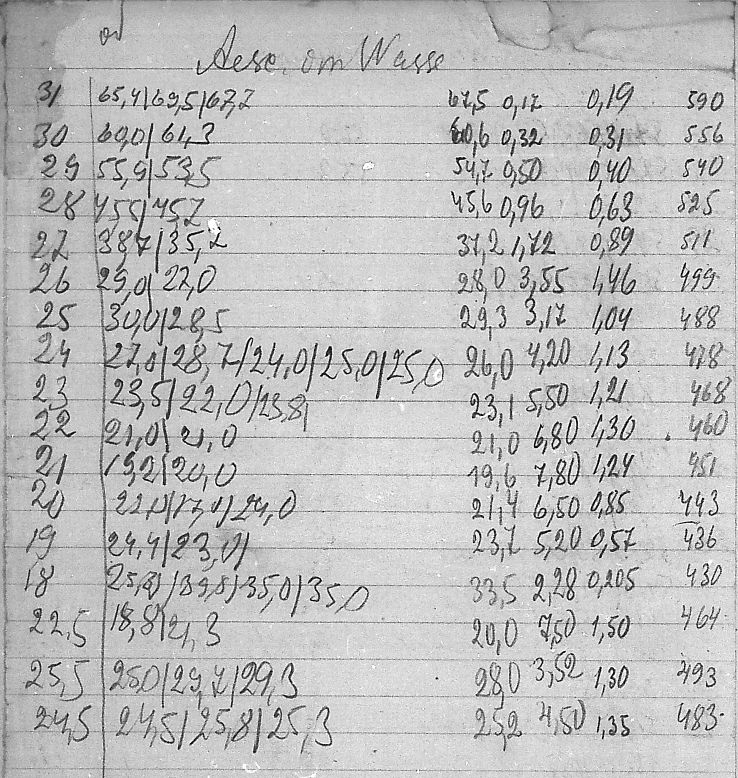 31 65,4|69,5|67,7 67,5 0,17 0,19 590
30 60,0|61,3 60,6 0,32 0,31 556
29 55,9|53,5 54,7 0,50 0,40 540
28 45,5|45,7 45,6 0,96 0,63 525
27 38,7|35,7 37,2 1,72 0,89 511
26 29,0|22,0 28,0 3,55 1,46 499
25 30,0|28,5 29,3 3,17 1,04 488
24 27,0|28,7|24,0|25,0|25,0 26,0 4,20 1,13 478
23 23,5|22,0|23,8| 23,1 5,50 1,21 468
22 21,0|21,0 21,0 6,80 1,30 460
21 19,2|20,0 19,6 7,80 1,24 451
20 24,0 21,4 6,50 0,85 443
19 24,4|23,0| 23,7 5,20 0,57 436
18 35,0|35,0 33,5 2,28 0,205 430
22,5 18,8|21,3 20,0 7,50 1,50 464
25,5 25,0|29,7|29,3 28,0 3,52 1,30 493
24,5 24,5|25,8|25,3 25,2 4,50 1,35 483